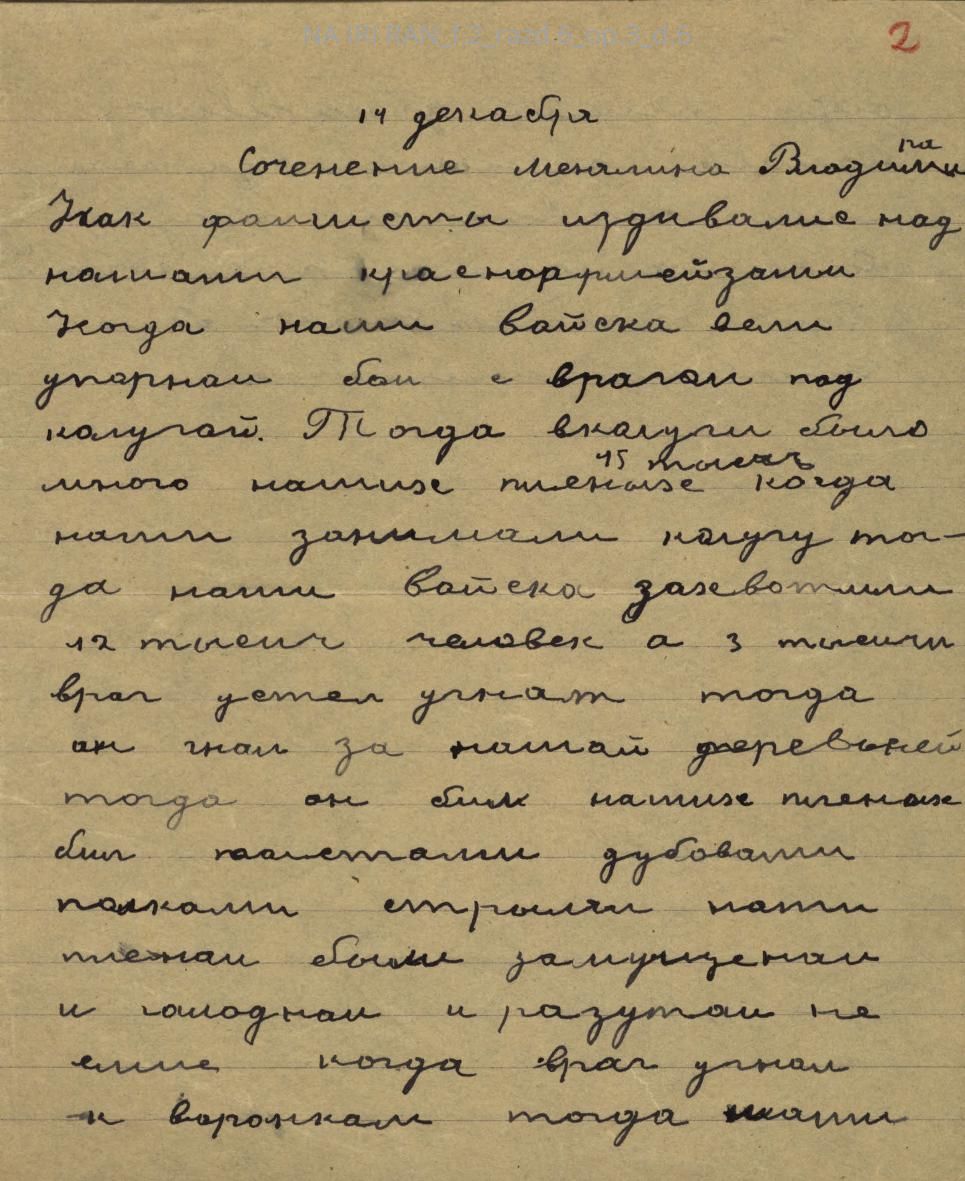 NA IRI RAN_f.2_razd.6_op.3_d.6
2
14 декабря
Соченение Менялина
Как фашисты издивалис над
нашами красноармейзами
Когда наши вайска вели
упарнаи баи с врагам под
калугай. Тогда вкалуги было
15 тысечь
много нашизх пленызх когда
наши занимали калугу тог-
да наши вайска захватили
12 тысеич человек а 3 тысичи
враг успел угнат тогда
ан гнал за нашай деревьней
тогда он бил наших пленых
бил дубовами
палками наши
пленаи были замущенаи
и галоднаи и разутаи не
елие когда враг угнал
к варонкам тогда наши